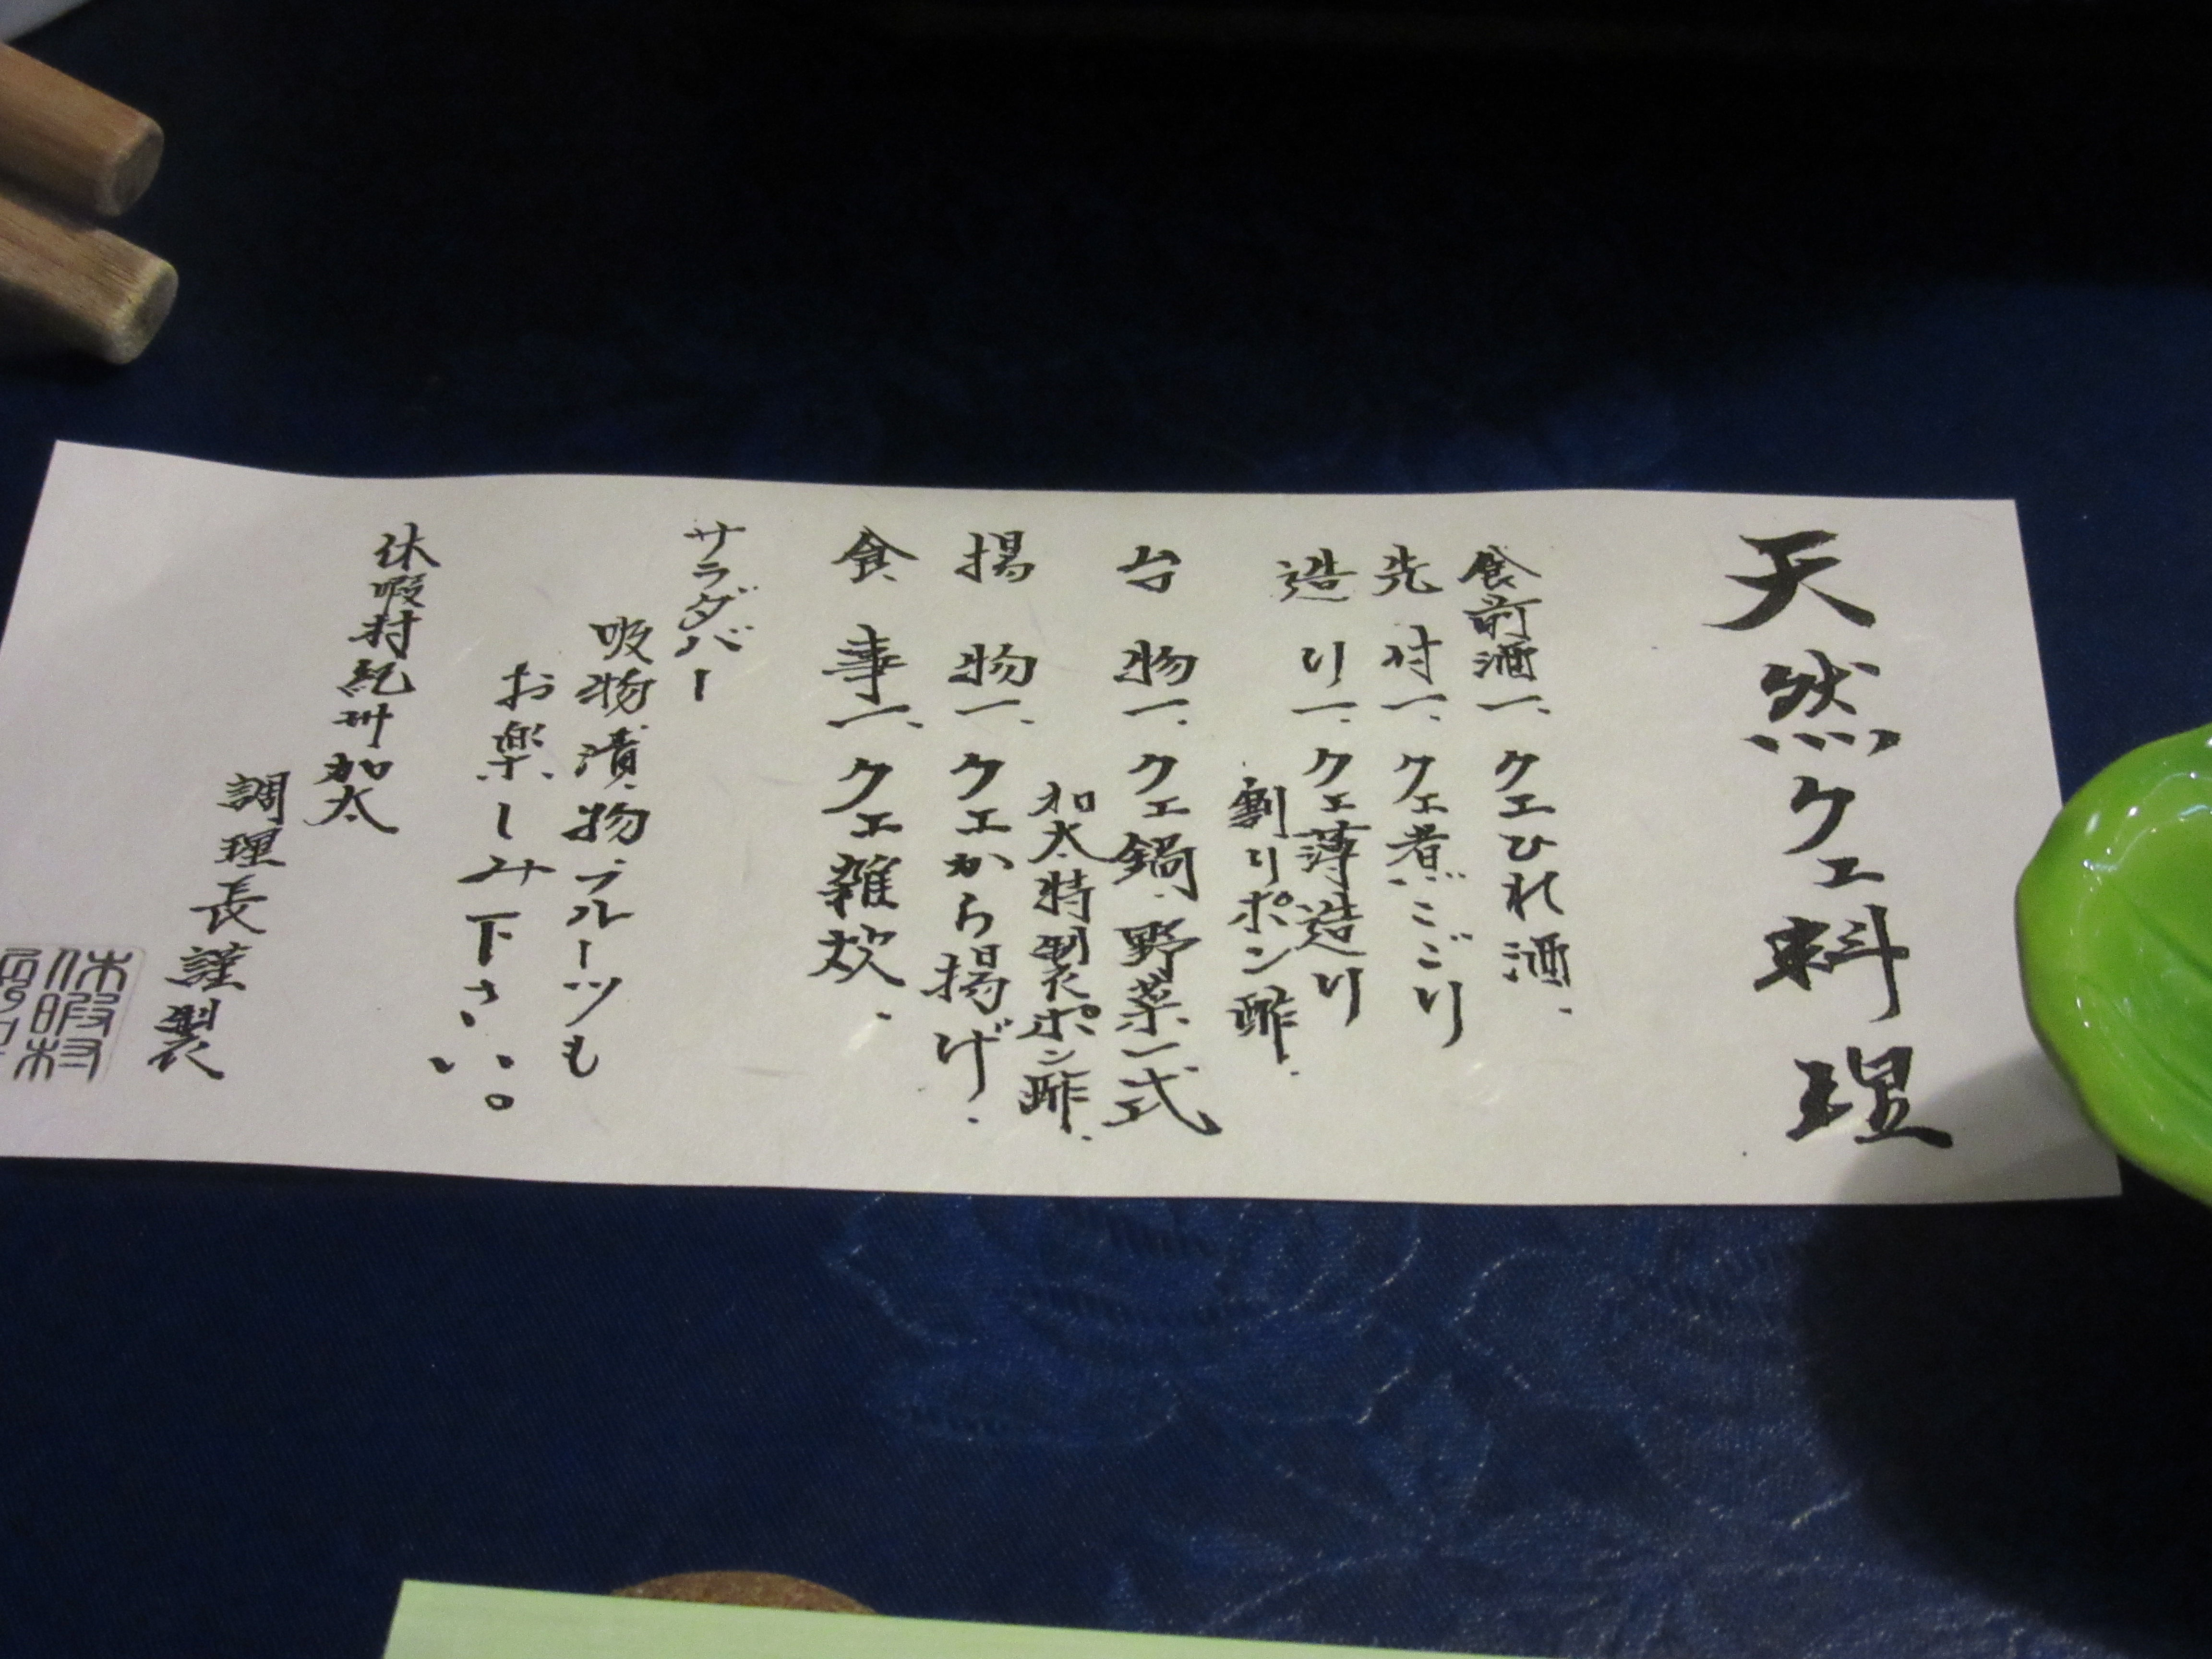 天然クエ料理
食前酒一、クエひれ酒、
先付一、クエ煮こごり
造り一、クエ薄造り
割りポン酢、
台物一、クエ鍋、野菜一式
加太特製ポン酢、
揚物一、クエから揚げ、
食事一、クエ雑炊、
サラダバー
吸物、漬物、フルーツも
お楽しみ下さい。
休暇村紀州加太
調理長謹製
休暇村